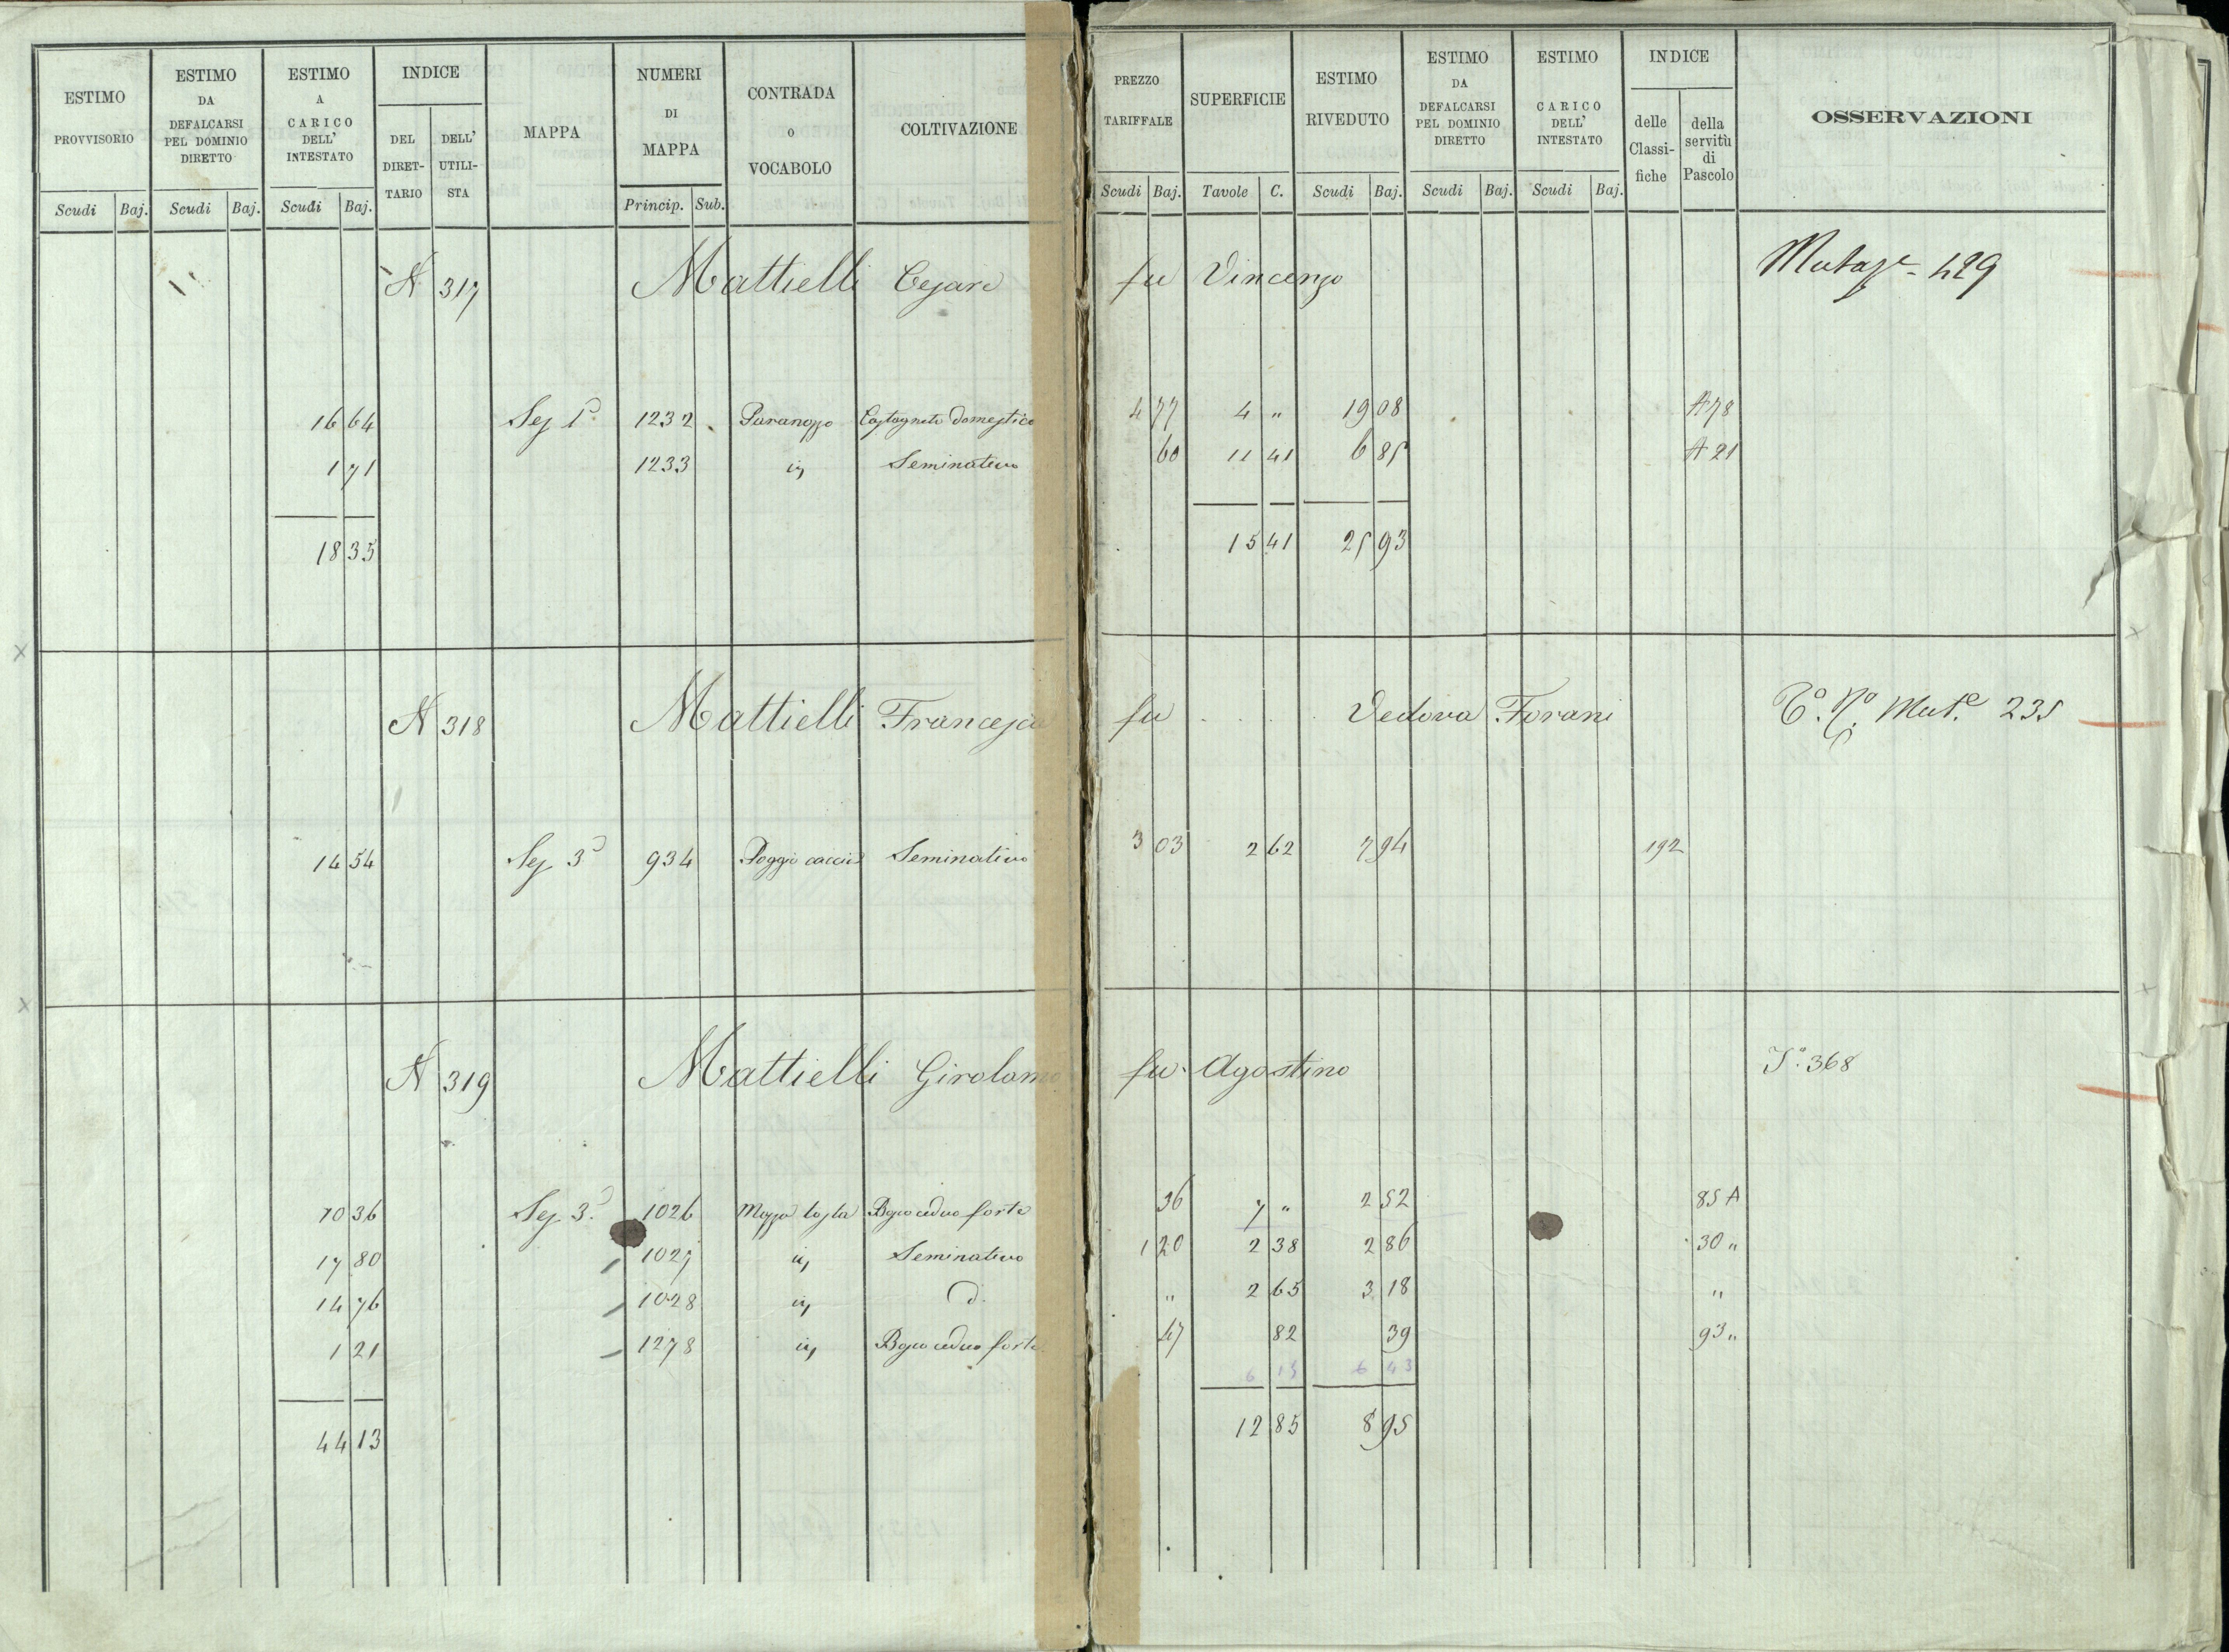 ESTIMO PROVVISORIO
ESTIMO DA DEFALCARSI PEL DOMINIO DIRETTO
ESTIMO A CARICO DELL' INTESTATO
INDICE
DEL DIRET-TARIO
DELL' UTILI-STA
MAPPA
NUMERI DI MAPPA
CONTRADA O VOCABOLO
COLTIVAZIONE
PREZZO TARIFFALE
SUPERFICIE
ESTIMO RIVEDUTO
ESTIMO DA DEFALCARSI PEL DOMINIO DIRETTO
ESTIMO CARICO DELL' INTESTATO
INDICE
delle Classi-fiche
della servitù di Pascolo
OSSERVAZIONI
Scudi Baj. Scudi Baj. Scudi Baj. Princip. Sub. Scudi Baj. Tavole C. Scudi Baj. Scudi Baj. Scudi Baj.
N 317 Mattielli Cesare fu Vincenzo 429
16 64 Sez 1ª 1232 Castagneto domestico 4 77 4 " 19 08 A 78
1 71 1233 Seminativo 60 11 41 6 85 A 21
18 35 15 41 25 93
N 318 Mattielli Francesca fu . . . . Vedova Forani Mut.e 235
14 54 Sez 3ª 934 Seminativo 3 03 2 62 7 94 192
N 319 Mattielli Girolamo fu Agostino 368
10 36 Sez 3ª 1026 Mezza Costa Bosco ceduo forte 36 7 " 2 52 85 A
17 80 1027 Seminativo 1 20 2 38 2 86 30 "
14 76 1028 d. " 2 65 3 18 "
1 21 1278 Bosco ceduo forte 47 82 39 93 "
6 43
44 13 12 85 8 95